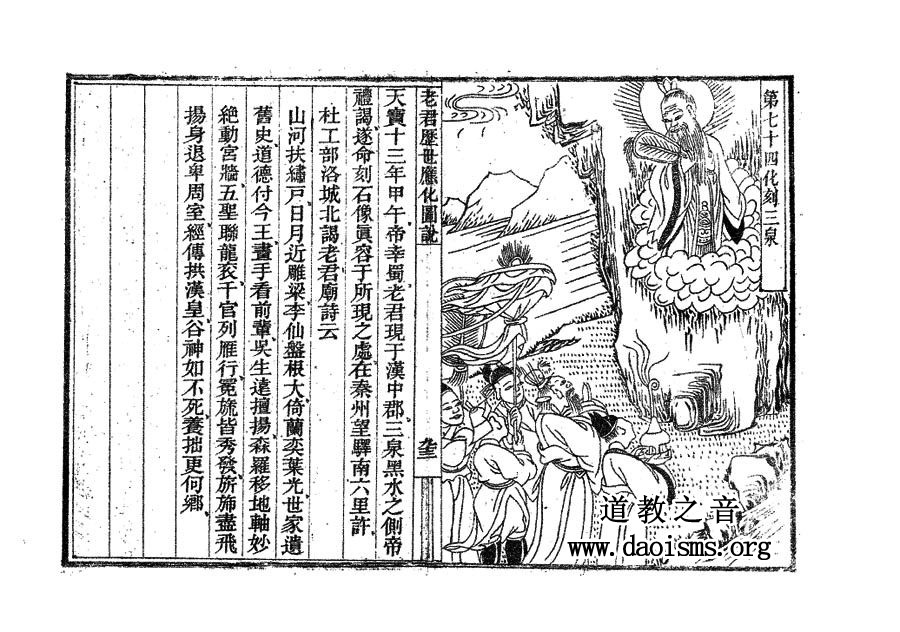 第七十四化刻三泉
老君歷世應化圖說
天寶十三年甲午帝幸蜀老君現于漢中郡三泉黑水之側帝
禮謁遂命刻石像眞容于所現之處在秦州望驛南六里許
杜工部洛城北謁老君廟詩云
山河扶繡戶日月近雕梁李仙盤根大倚蘭奕葉光世家遺
舊史道德付今王畫手看前輩吳生遠擅揚森羅移地軸妙
絶動宮牆五聖聯龍衮千官列雁行冕旒皆秀發旂旆盡飛
揚身退卑周室經傳拱漢皇谷神如不死養拙更何鄉
道教之音
www.daoisms.org